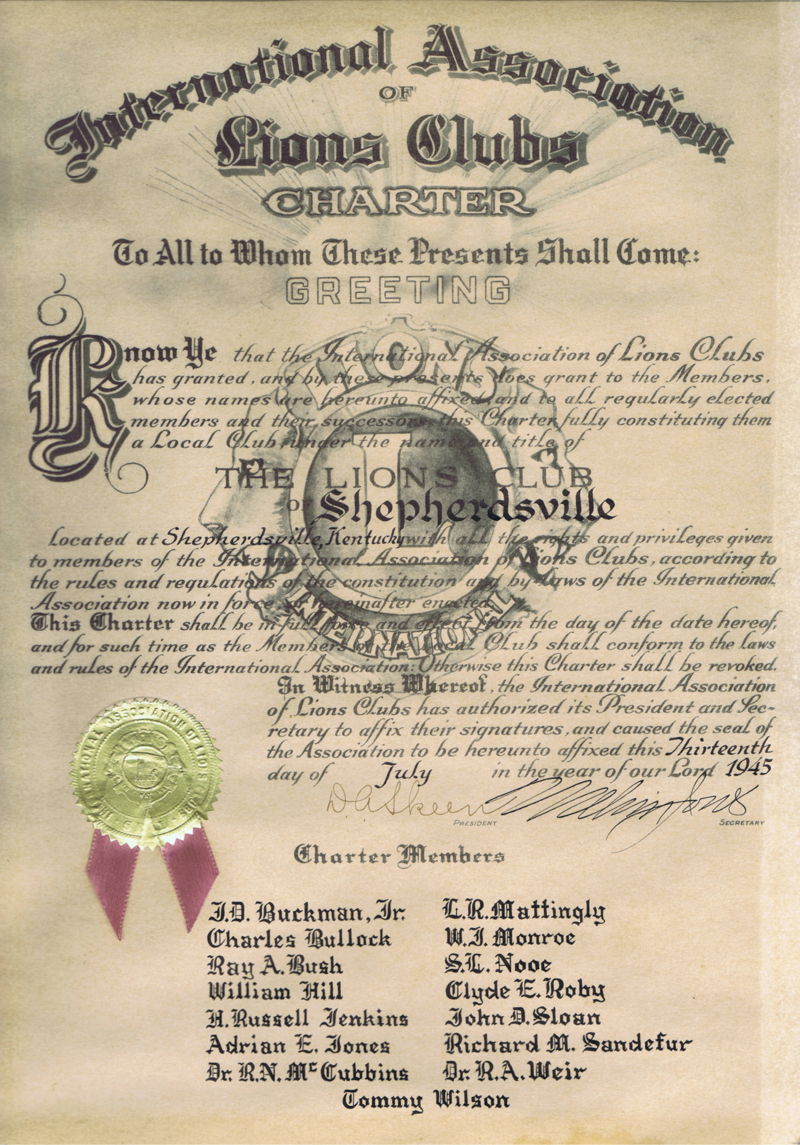 International Association
OF
Lions Clubs
CHARTER
To All to Whom These Presents Shall Come:
GREETING
Know Ye that the International Association of Lions Clubs
has granted, and by these presents does grant to the Members,
whose names are hereunto affixed, and to all regularly elected
members and their successors, this Charter fully constituting them
a Local Club under the name and title of
THE LIONS CLUB
of Shepherdsville
Located at Shepherdsville, Kentucky with all the rights and privileges given
to members of the International Association of Lions Clubs, according to
the rules and regulations of the constitution and by-laws of the International
Association now in force, or hereinafter enacted.
This Charter shall be in full force and effect from the day of the date hereof,
and for such time as the Members of a Local Club shall conform to the laws
and rules of the International Association: Otherwise this Charter shall be revoked.
In Witness Whereof, the International Association
of Lions Clubs has authorized its President and Sec-
retary to affix their signatures, and caused the seal of
the Association to be hereunto affixed this Thirteenth
day of July in the year of our Lord 1945
D. A. Skeen
PRESIDENT SECRETARY
LIONS
INTERNATIONAL
Charter Members
J.D. Buckman, Jr. L.R. Mattingly
Charles Bullock W.J. Monroe
Ray A. Bush S.L. Nooe
William Hill Clyde E. Roby
H. Russell Jenkins John D. Sloan
Adrian E. Jones Richard M. Sandefur
Dr. R.N. McCubbins Dr. R.A. Weir
Tommy Wilson